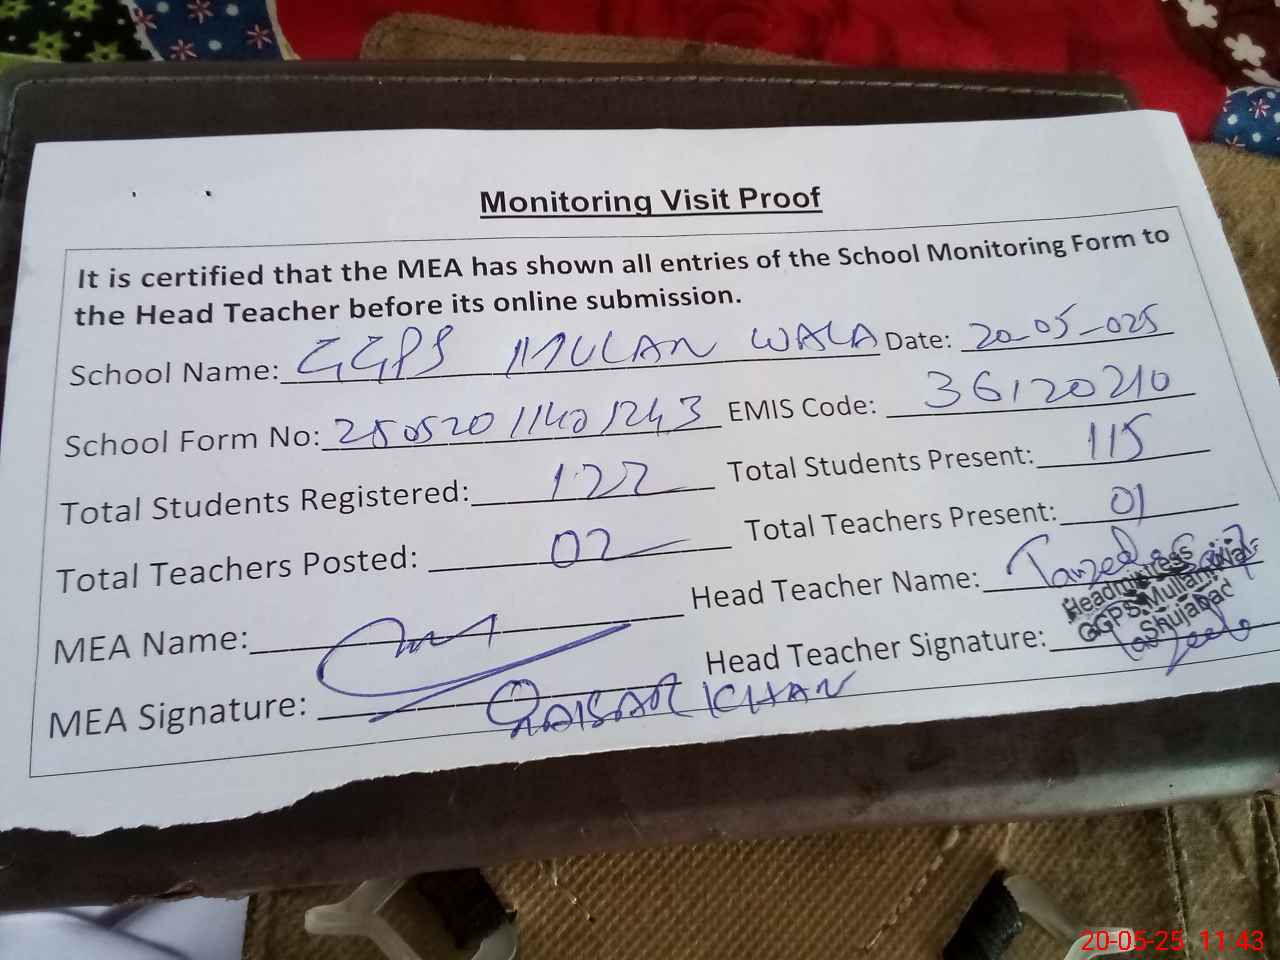 Monitoring Visit Proof
It is certified that the MEA has shown all entries of the School Monitoring Form to
the Head Teacher before its online submission.
School Name: GGPS MULAN WALA Date: 20-05-025
School Form No: 25052011401243 EMIS Code: 36120210
Total Students Registered: 122 Total Students Present: 115
Total Teachers Posted: 02 Total Teachers Present: 01
MEA Name: Head Teacher Name:
Headmistress
GGPS Mullanwala
Shujabad
MEA Signature: QAISAR KHAN Head Teacher Signature:
20-05-25 11:43